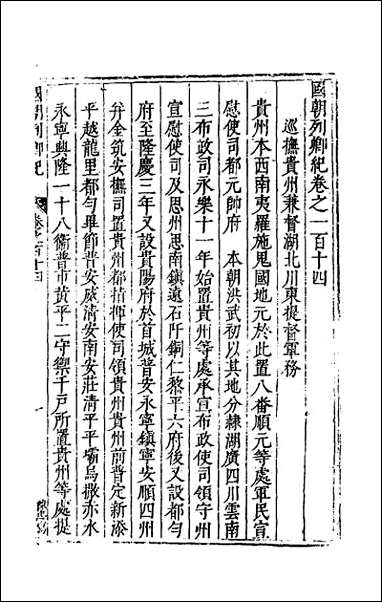 國朝列卿紀卷之一百十四
巡撫貴州兼督湖北川東提督軍務
貴州本西南夷羅施鬼國地元於此置八番順元等處軍民宣
慰使司都元帥府 本朝洪武初以其地分隸湖廣四川雲南
三布政司永樂十一年始置貴州等處承宣布政使司領守州
宣慰使司及思州思南鎮遠石阡銅仁黎平六府後又設都勻
府至隆慶三年又設貴陽府於首城普安永寧鎮寧安順四州
并金筑安撫司置貴州都指揮使司領貴州貴州前普定新添
平越龍里都勻畢節普安威清安南安莊清平平壩烏撒赤水
永寧興隆一十八衛普市黃平二守禦千戶所置貴州等處提
國朝列卿紀
卷百十四
一